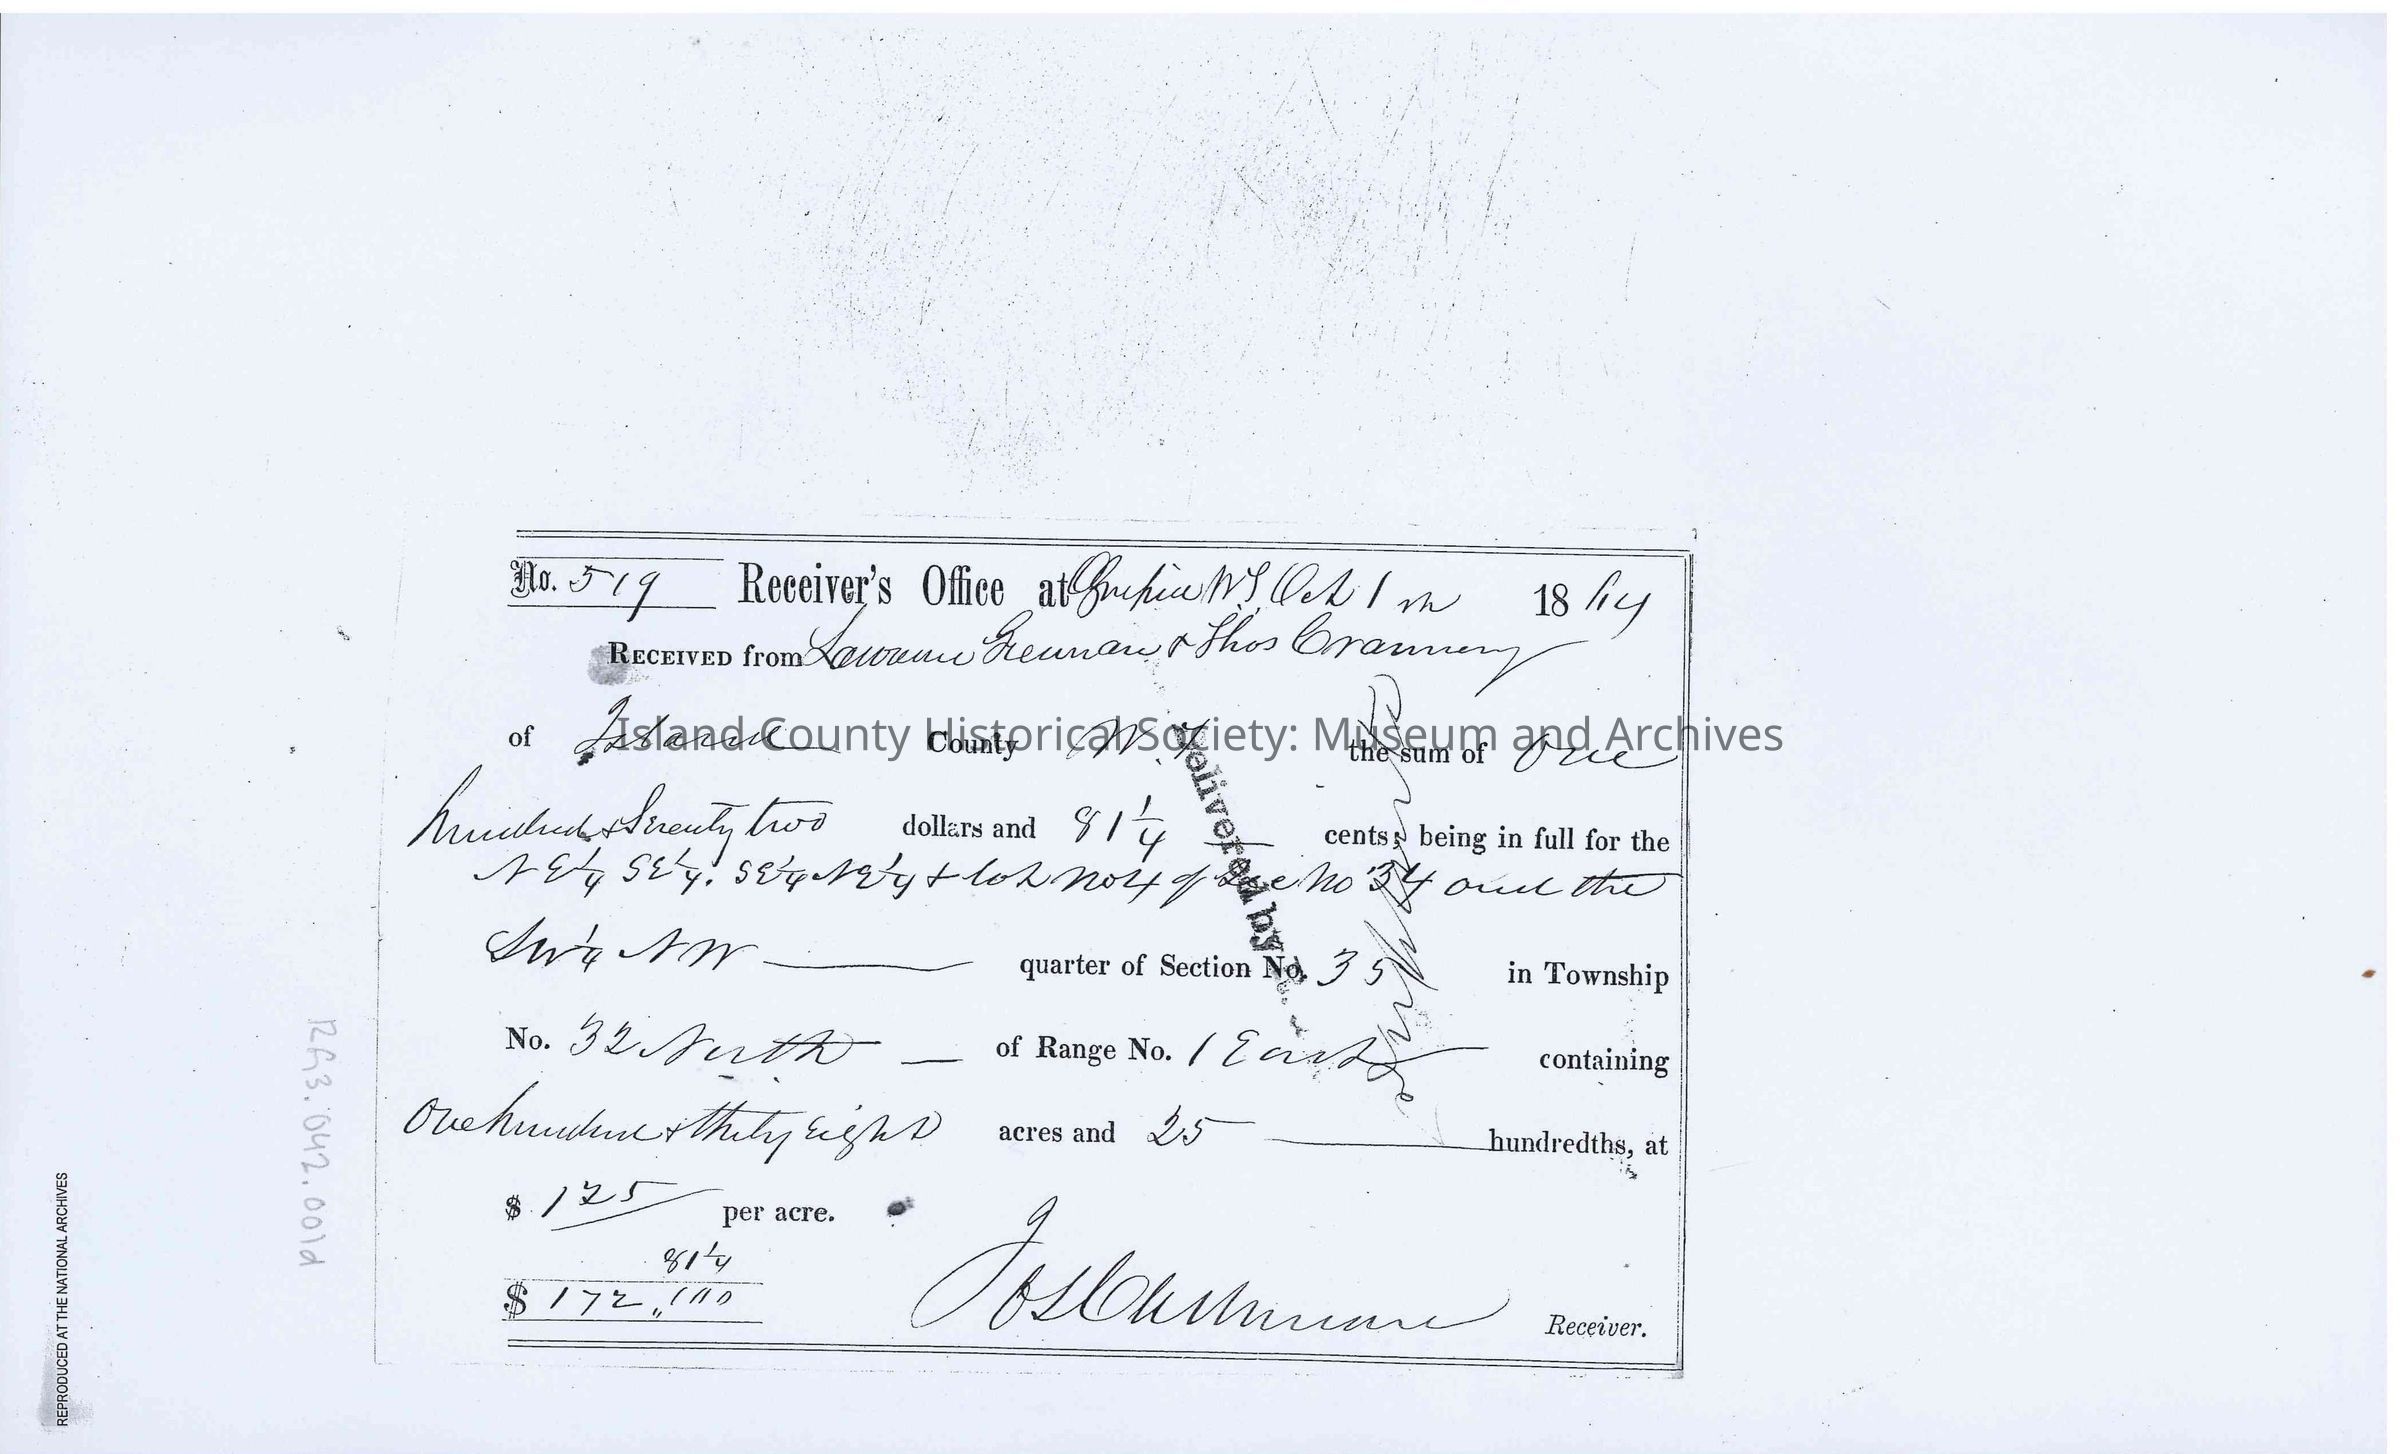 No. 519 Receiver's Office at Olympia W.T. Oct 1st 1864
RECEIVED from Lawrence Grennan & Thos Cranney
of Island County W.T. the sum of One
hundred & Seventy two dollars and 81 1/4 cents; being in full for the
NE 1/4 SE 1/4. SE 1/4 NE 1/4 & lot No 4 of Sec No 34 and the
SW 1/4 NW quarter of Section No. 35 in Township
No. 32 North of Range No. 1 East containing
One hundred & thirty Eight acres and 25 hundredths, at
$ 1 25 per acre.
$ 172 „ 81 1/4 / 100
Jos Cushman Receiver.
Delivered by
Island County Historical Society: Museum and Archives
REPRODUCED AT THE NATIONAL ARCHIVES